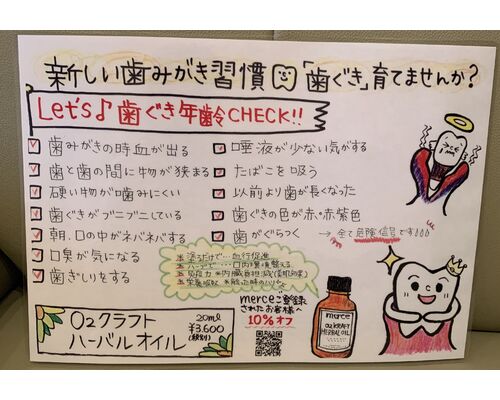 新しい歯みがき習慣「歯ぐき」育てませんか?
Let's♪歯ぐき年齢CHECK!!
歯みがきの時血が出る
歯と歯の間に物が狭まる
硬い物が噛みにくい
歯ぐきがブニブニしている
朝、口の中がネバネバする
口臭が気になる
歯ぎしりをする
唾液が少ない気がする
たばこを吸う
以前より歯が長くなった
歯ぐきの色が赤・赤紫色
歯がぐらつく
→全て危険信号です!!!
塗るだけで…血行促進
ハーブで…口内環境整える
O2クラフト
ハーバルオイル
20ml
¥3,600
(税別)
merceご登録
されたお客様へ
10%オフ
merce
O2KRAFT
HERBAL OIL